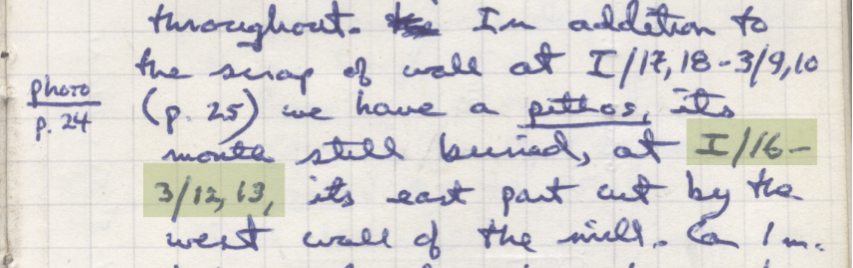 throughout. In addition to
the scrap of wall at I/17,18-3/9,10
photo
p. 24
(p. 25) we have a pithos, its
mouth still buried, at I/16-
3/12,13, its east part cut by the
west wall of the mill. Ca 1 m.